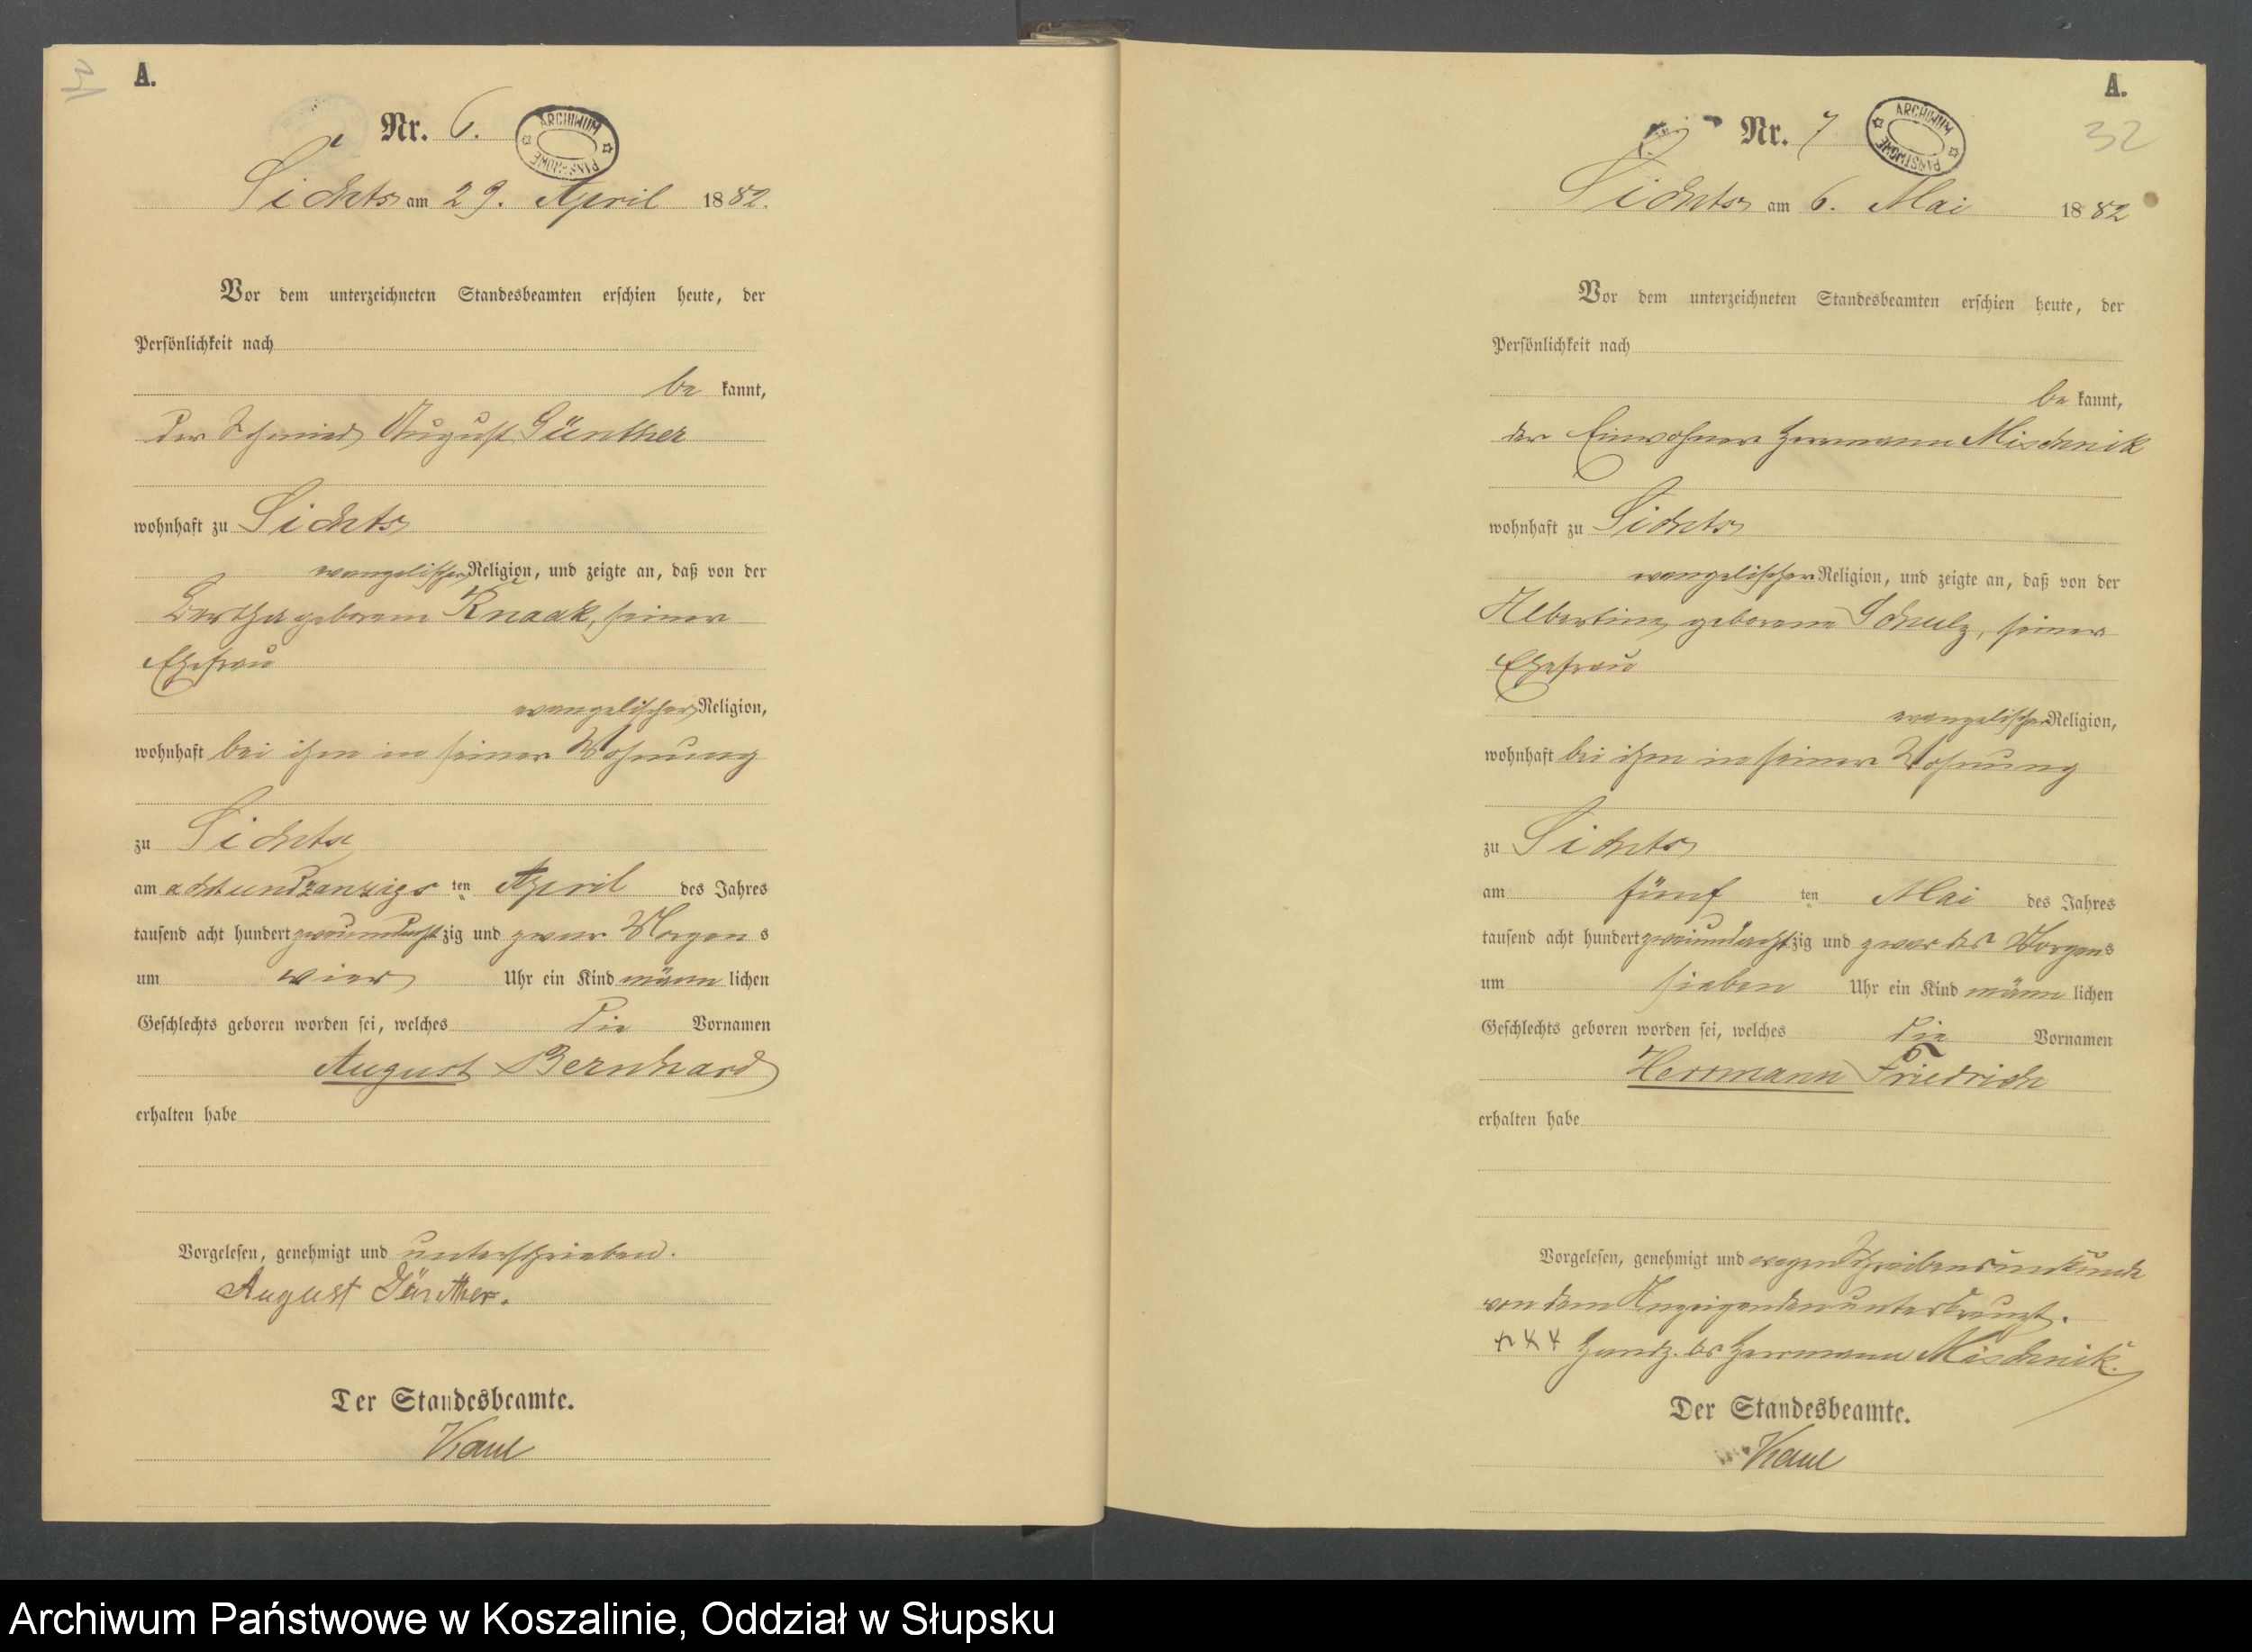 A.
Nr. 6.
ARCHIWUM PAŃSTWOWE
Sichts am 29. April 1882.
Vor dem unterzeichneten Standesbeamten erschien heute, der
Persönlichkeit nach
be kannt,
der Schmied August Günther
wohnhaft zu Sichts
evangelischer Religion, und zeigte an, daß von der
Bertha geborene Knaak, seiner
Ehefrau
evangelischer Religion,
wohnhaft bei ihm in seiner Wohnung
zu Sichts
am achtundzanzigs ten April des Jahres
tausend acht hundert zweiundacht zig und zwar Morgen s
um vier Uhr ein Kind männ lichen
Geschlechts geboren worden sei, welches die Vornamen
August Bernhard
erhalten habe
Vorgelesen, genehmigt und unterschrieben.
August Günther.
Der Standesbeamte.
Kaul
A.
32
Nr. 7
ARCHIWUM PAŃSTWOWE
Sichts am 6. Mai 1882
Vor dem unterzeichneten Standesbeamten erschien heute, der
Persönlichkeit nach
be kannt,
der Einwohner Herrmann Mischnik
wohnhaft zu Sichts
evangelischer Religion, und zeigte an, daß von der
Albertine geborene Schulz, seiner
Ehefrau
evangelischer Religion,
wohnhaft bei ihm in seiner Wohnung
zu Sichts
am fünf ten Mai des Jahres
tausend acht hundert zweiundacht zig und zwar des Morgens
um sieben Uhr ein Kind männ lichen
Geschlechts geboren worden sei, welches die Vornamen
Herrmann Friedrich
erhalten habe
Vorgelesen, genehmigt und wegen Schreibensunkunde
von dem Anzeigenden unterkreuzt.
+++ Handz. des Herrmann Mischnik.
Der Standesbeamte.
Kaul
Archiwum Państwowe w Koszalinie, Oddział w Słupsku